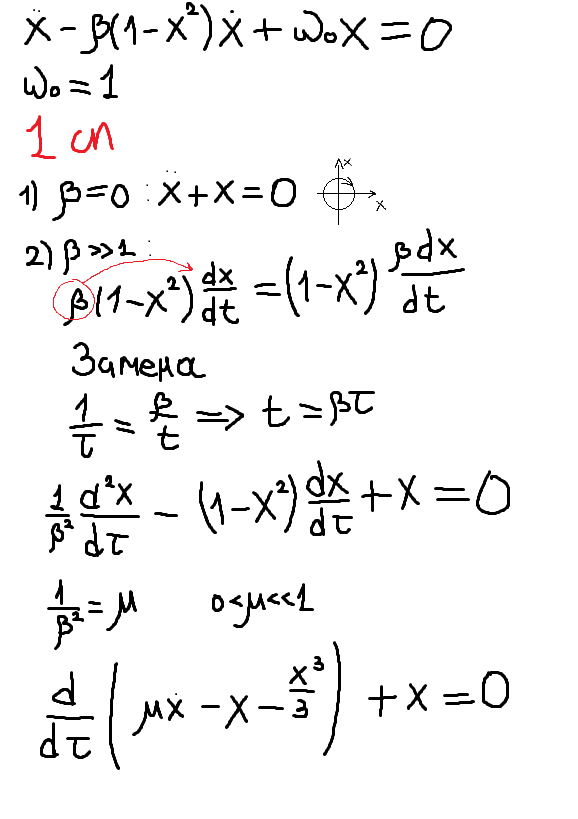 ẍ - β(1-x²)ẋ + ω₀x = 0
ω₀ = 1
1 сп
1) β=0 : ẍ + x = 0 ẋ x
2) β >> 1 :
β(1-x²) dx/dt = (1-x²) βdx/dt
Замена
1/τ = β/t => t = βτ
1/β² d²x/dτ - (1-x²) dx/dτ + x = 0
1/β² = μ 0<μ<<1
d/dτ (μẋ - x - x³/3) + x = 0